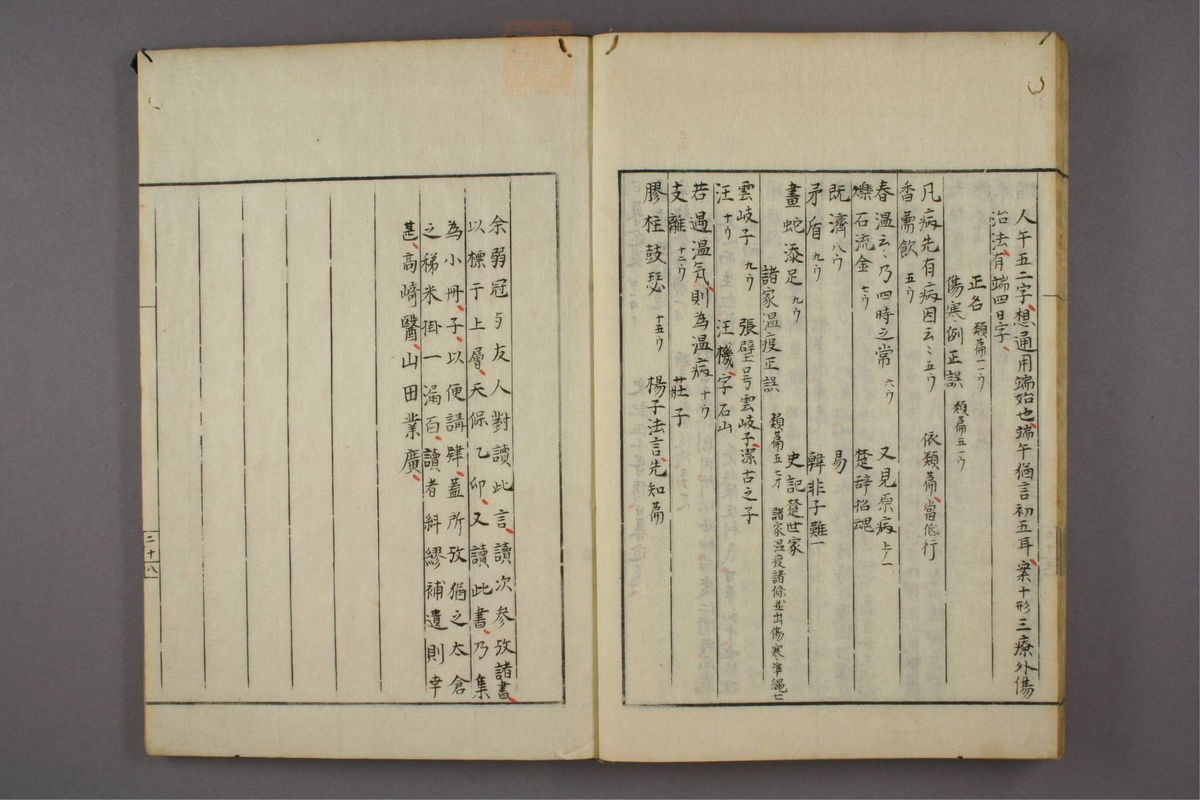 人午五二字想通用端始也端午猶言初五耳案十形三療外傷
治法有端四日字
正名 類篇二ウ
傷寒例正誤 類篇五一ウ
凡病先有病因云〻五ウ 依類篇當低行
香薷飲 五ウ
春温云〻乃四時之常 六ウ 又見原病上ノ一
爍石流金 七ウ 楚辞招魂
既濟 八ウ 易
矛盾 九ウ 韓非子難一
畫蛇添足 九ウ 史記楚世家
諸家温疫正誤 類篇五七オ 諸家温疫諸條並出傷寒準繩七
雲岐子 九ウ 張璧号雲岐子潔古之子
汪 十ウ 汪機字石山
若過温気則為温病 十ウ
支離 十二ウ 莊子
膠柱鼓瑟 十五ウ 楊子法言先知篇
余弱冠与友人對讀此言讀次参攷諸書
以標于上層天保乙卯又讀此書乃集
為小冊子以便講肆蓋所攷猶之太倉
之稊米掛一漏百讀者糾繆補遺則幸
甚高﨑醫山田業廣
二十八